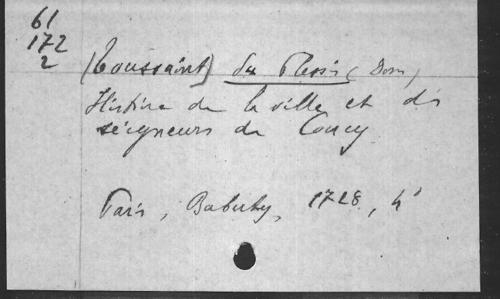 61
172
2
(Toussaint) du Plessis (Dom)
Histoire de la ville et des
seigneurs de Coucy
Paris, Babuty, 1728, 4°